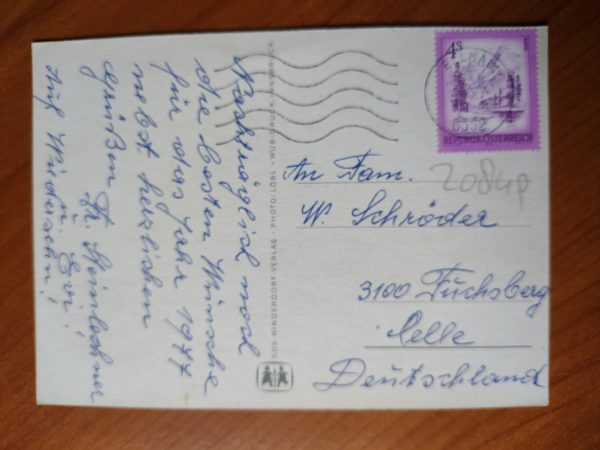 Nachträglich noch
die besten Wünsche
für das Jahr 1977
nebst herzlichen
Grüßen
u. Evi!
Auf Wiedersehn!
S.O.S. KINDERDORF-VERLAG · PHOTO: LÖBL · WUB-DRUCK, INNSBRUCK
4S
REPUBLIK ÖSTERREICH
6352
2084p
An Fam.
W. Schröder
3100 Fuchsberg
Celle
Deutschland